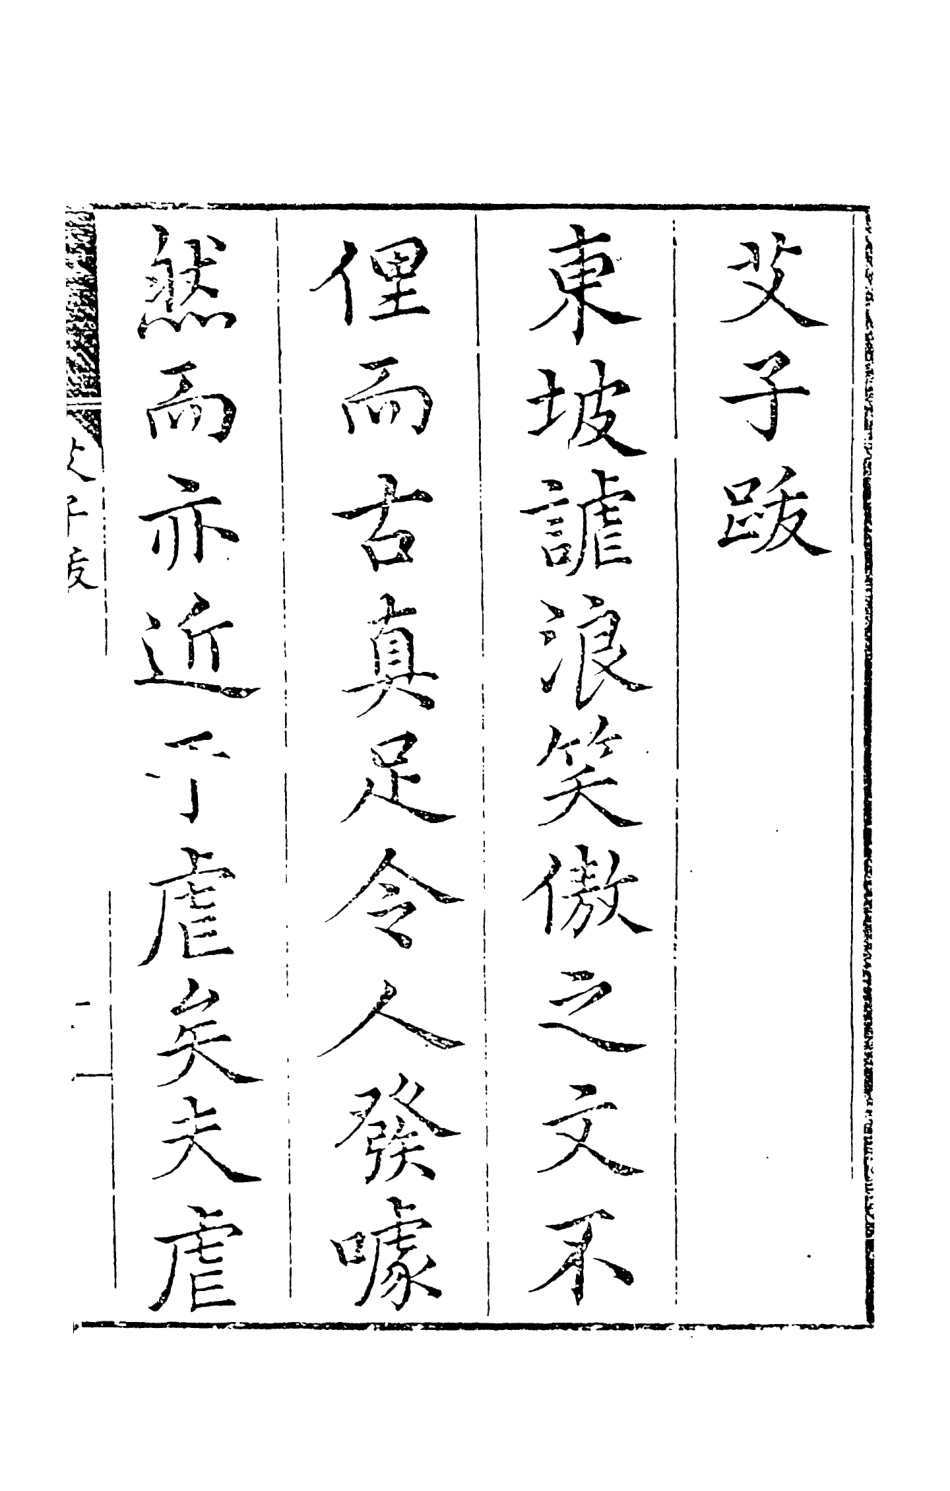 艾子跋
東坡謔浪笑傲之文不
俚而古真足令人發噱
然而亦近于虐矣夫虐
艾子跋
一